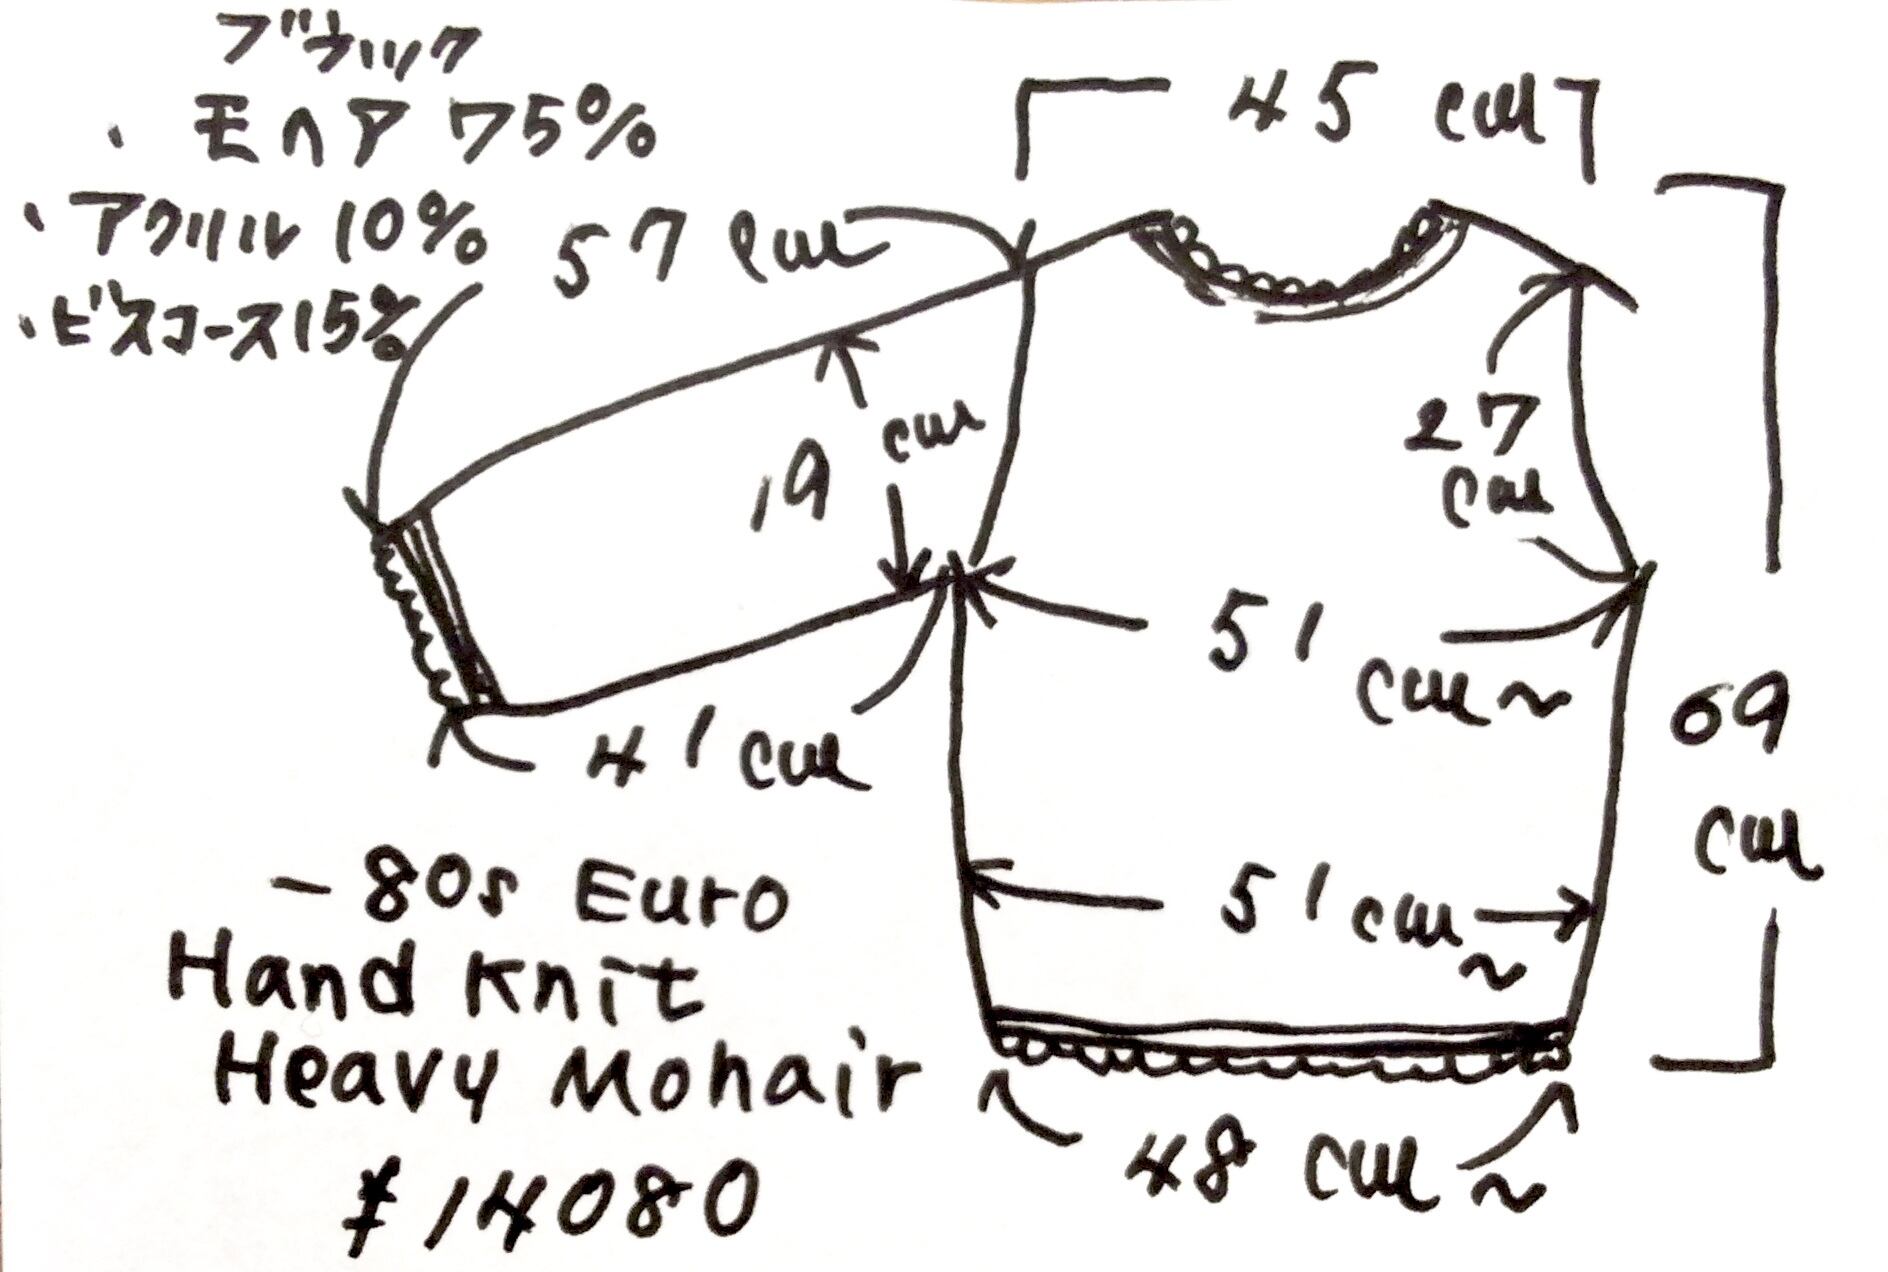 ブラック
・モヘア 75%
・アクリル 10%
・ビスコース 15%
45 cm
57 cm
27 cm
19 cm
51 cm~
41 cm
69 cm
51 cm~
48 cm~
-80s Euro
Hand Knit
Heavy Mohair
¥14080